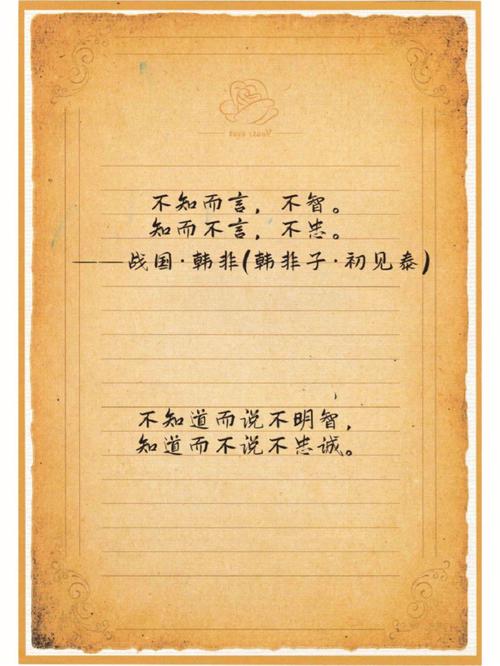 不知而言，不智。
知而不言，不忠。
——战国·韩非(韩非子·初见泰)
不知道而说不明智，
知道而不说不忠诚。